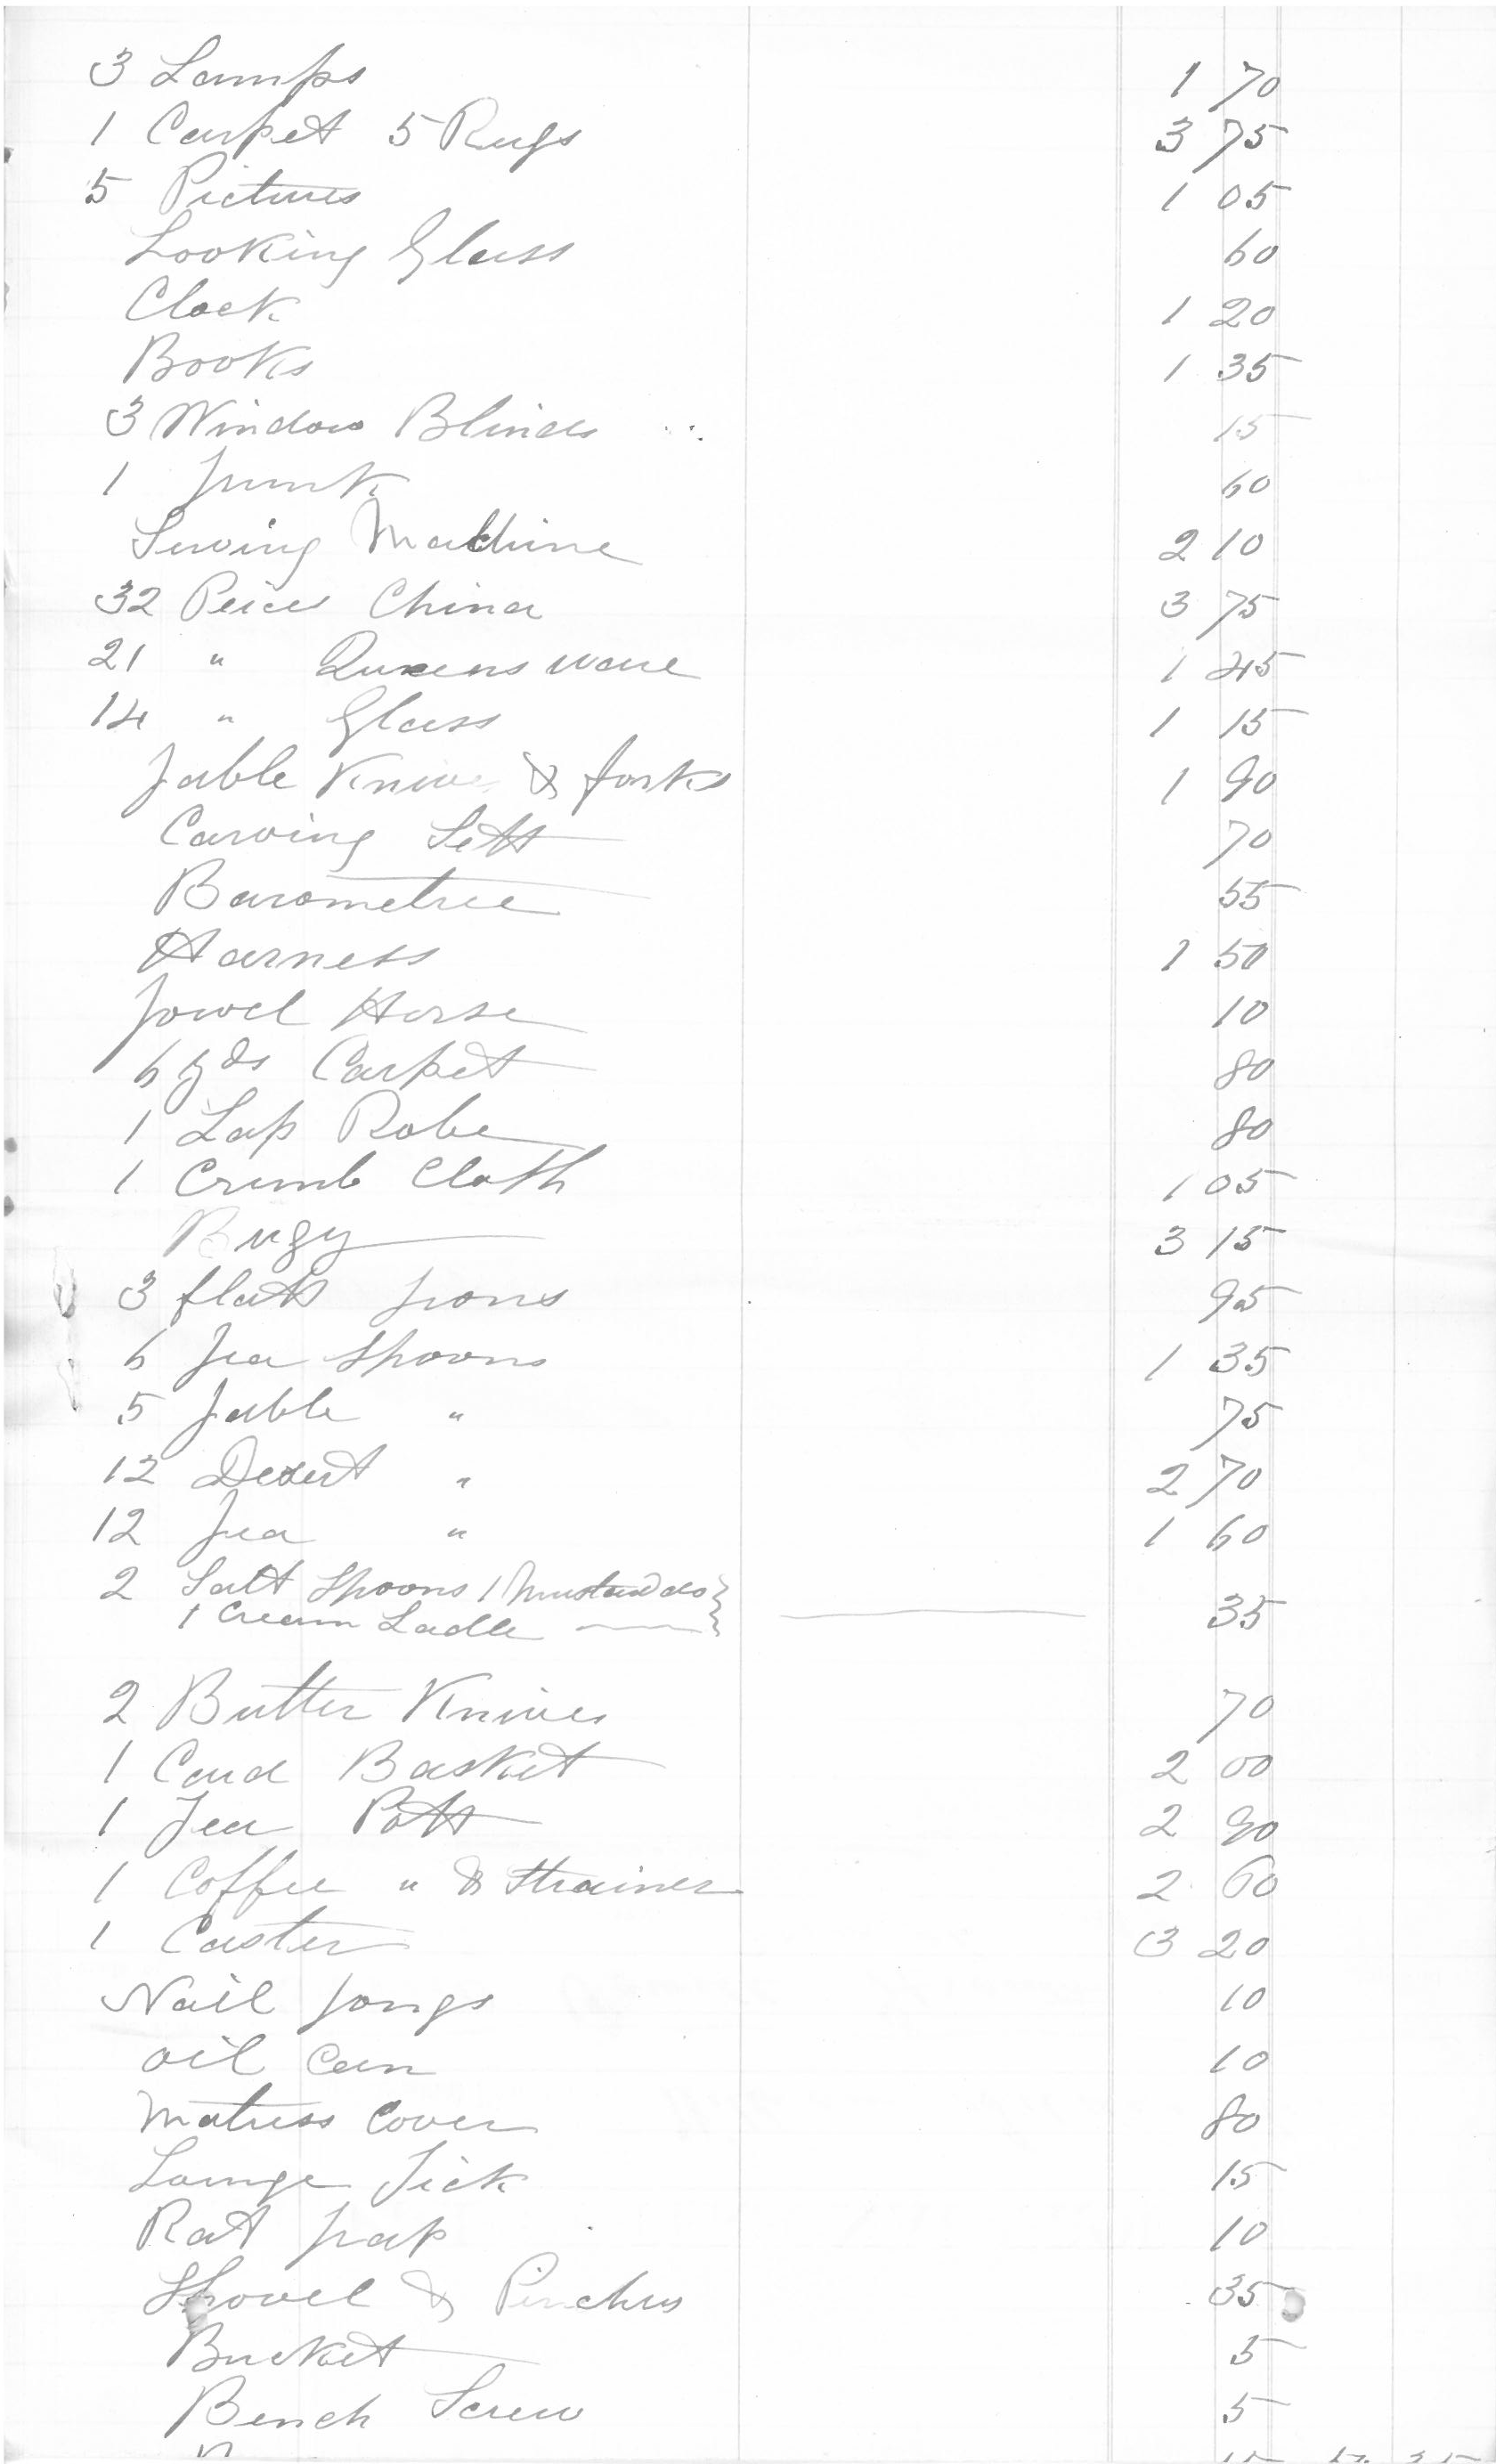 3 Lamps 1 70
1 Carpet 5 Rugs 3 75
5 Pictures 1 05
Looking Glass 60
Clock 1 20
Books 1 35
3 Window Blinds 15
1 Trunk 60
Sewing Machine 2 10
32 Peices China 3 75
21 " Queens ware 1 45
14 " Glass 1 15
Table Knives & forks 1 90
Carving Sett 70
Barometree 55
Harness 1 50
Towel Horse 10
6 yds Carpet 80
1 Lap Robe 80
1 Crumb Cloth 1 05
Bugy 3 15
3 flatt Irons 95
6 Tea Spoons 1 35
5 Table " 75
12 Desert " 2 70
12 Tea " 1 60
2 Salt Spoons 1 Mustard do }
1 Cream Ladle } 35
2 Butter Knives 70
1 Card Basket 2 00
1 Tea Pott 2 90
1 Coffee " & Strainer 2 60
1 Caster 3 20
Nail Tongs 10
oil can 10
Matress Cover 80
Lounge Tick 15
Rat Trap 10
Shovel & Pinchers 35
Bucket 5
Bench Screw 5